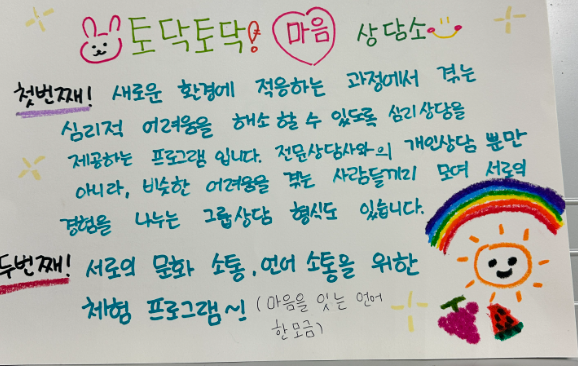 토닥토닥! 마음 상담소
첫번째! 새로운 환경에 적응하는 과정에서 겪는
심리적 어려움을 해소 할 수 있도록 심리상담을
제공하는 프로그램 입니다. 전문상담사와의 개인상담 뿐만
아니라, 비슷한 어려움을 겪는 사람들끼리 모여 서로의
경험을 나누는 그룹상담 형식도 있습니다.
두번째! 서로의 문화 소통, 언어 소통을 위한
체험 프로그램~! (마음을 잇는 언어
한모금)